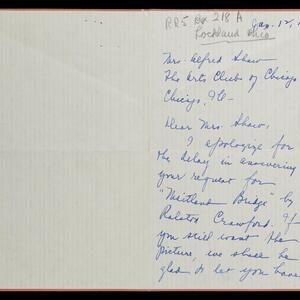 RR5 Bx 218 A
Rockland Ohio
Jan. 12, 1
Mrs. Alfred Shaw
The Arts Club of Chicago
Chicago, Ill-
Dear Mrs. Shaw:
I apologize for
the delay in answering
your request for
"Maitland Bridge" by
Ralston Crawford. If
you still want the
picture, we shall be
glad to let you have